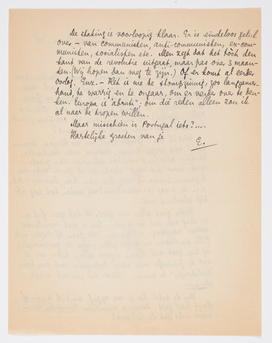 De staking is voorloopig klaar. Er is eindeloos gelul
over – van communisten, anti-communisten, ex-com-
munisten, socialisten etc. Men zegt dat het
van de revolutie uitgaat, maar pas over 3 maan-
den. (Wij hopen dan weg te zijn.) Of er komt al eerder
oorlog, enz. – Het is me te stompzinnig, zoo langzamer-
hand, te warrig en te onzeker, om er verder over te den-
ken. Europa is "abruti"; om die reden alleen zou ik
al naar de tropen willen.
Maar misschien is Portugal iets?....
Hartelijke groeten van je
E.